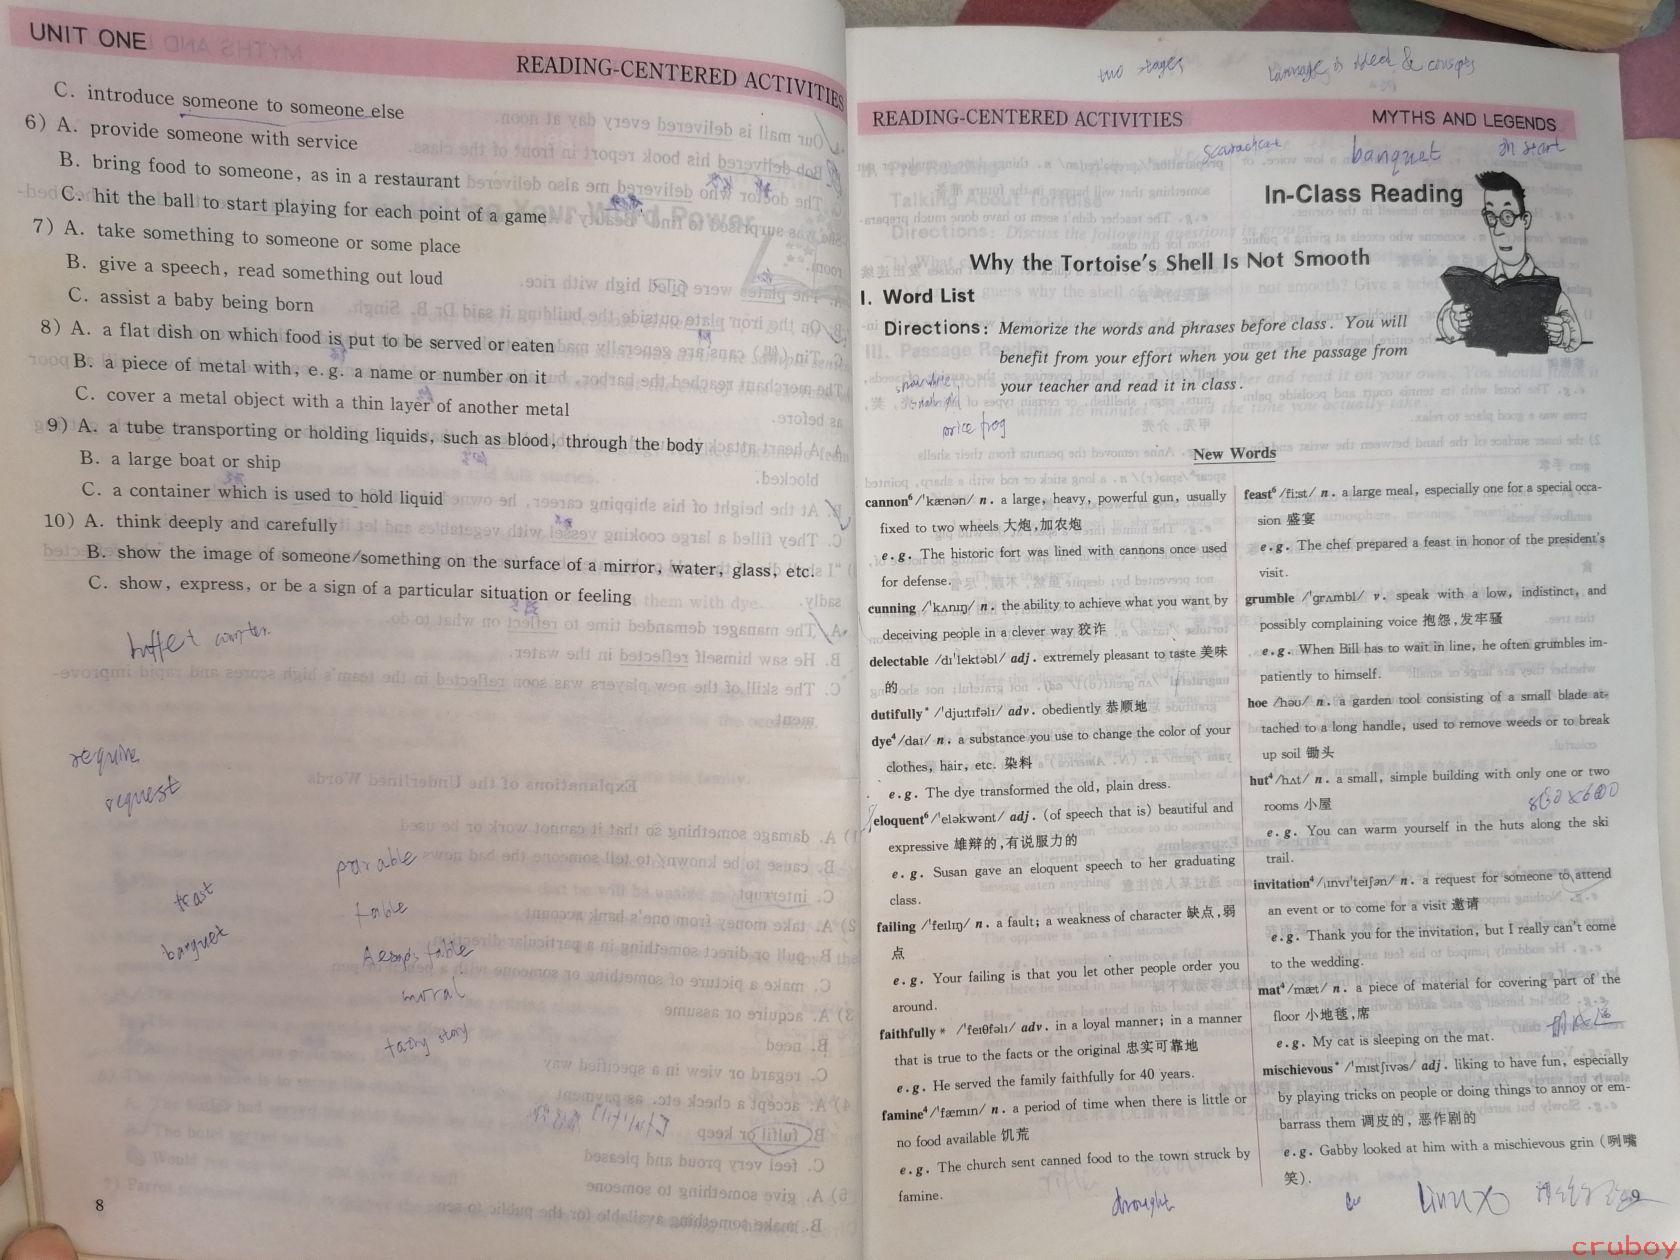 UNIT ONE
READING-CENTERED ACTIVITIES
C. introduce someone to someone else
6) A. provide someone with service
B. bring food to someone, as in a restaurant
C. hit the ball to start playing for each point of a game
7) A. take something to someone or some place
B. give a speech, read something out loud
C. assist a baby being born
8) A. a flat dish on which food is put to be served or eaten
B. a piece of metal with, e.g. a name or number on it
C. cover a metal object with a thin layer of another metal
9) A. a tube transporting or holding liquids, such as blood, through the body
B. a large boat or ship
C. a container which is used to hold liquid
10) A. think deeply and carefully
B. show the image of someone/something on the surface of a mirror, water, glass, etc.
C. show, express, or be a sign of a particular situation or feeling
buffet
require
request
parable
fable
banquet
Aesop's fable
moral
story
8
two stages
READING-CENTERED ACTIVITIES
MYTHS AND LEGENDS
banquet
In-Class Reading
Why the Tortoise's Shell Is Not Smooth
I. Word List
Directions: Memorize the words and phrases before class. You will
benefit from your effort when you get the passage from
your teacher and read it in class.
frog
New Words
cannon⁶ /ˈkænən/ n. a large, heavy, powerful gun, usually
fixed to two wheels 大炮,加农炮
e.g. The historic fort was lined with cannons once used
for defense.
cunning /ˈkʌnɪŋ/ n. the ability to achieve what you want by
deceiving people in a clever way 狡诈
delectable /dɪˈlektəbl/ adj. extremely pleasant to taste 美味
的
dutifully* /ˈdjuːtɪfəlɪ/ adv. obediently 恭顺地
dye⁴ /daɪ/ n. a substance you use to change the color of your
clothes, hair, etc. 染料
e.g. The dye transformed the old, plain dress.
eloquent⁶ /ˈeləkwənt/ adj. (of speech that is) beautiful and
expressive 雄辩的,有说服力的
e.g. Susan gave an eloquent speech to her graduating
class.
failing /ˈfeɪlɪŋ/ n. a fault; a weakness of character 缺点,弱
点
e.g. Your failing is that you let other people order you
around.
faithfully* /ˈfeɪθfəlɪ/ adv. in a loyal manner; in a manner
that is true to the facts or the original 忠实可靠地
e.g. He served the family faithfully for 40 years.
famine⁴ /ˈfæmɪn/ n. a period of time when there is little or
no food available 饥荒
e.g. The church sent canned food to the town struck by
famine.
feast⁶ /fiːst/ n. a large meal, especially one for a special occa-
sion 盛宴
e.g. The chef prepared a feast in honor of the president's
visit.
grumble /ˈgrʌmbl/ v. speak with a low, indistinct, and
possibly complaining voice 抱怨,发牢骚
e.g. When Bill has to wait in line, he often grumbles im-
patiently to himself.
hoe /həʊ/ n. a garden tool consisting of a small blade at-
tached to a long handle, used to remove weeds or to break
up soil 锄头
hut⁴ /hʌt/ n. a small, simple building with only one or two
rooms 小屋
e.g. You can warm yourself in the huts along the ski
trail.
invitation⁴ /ˌɪnvɪˈteɪʃən/ n. a request for someone to attend
an event or to come for a visit 邀请
e.g. Thank you for the invitation, but I really can't come
to the wedding.
mat⁴ /mæt/ n. a piece of material for covering part of the
floor 小地毯,席
e.g. My cat is sleeping on the mat.
mischievous* /ˈmɪstʃɪvəs/ adj. liking to have fun, especially
by playing tricks on people or doing things to annoy or em-
barrass them 调皮的, 恶作剧的
e.g. Gabby looked at him with a mischievous grin (咧嘴
笑).
drought
9
cruboy